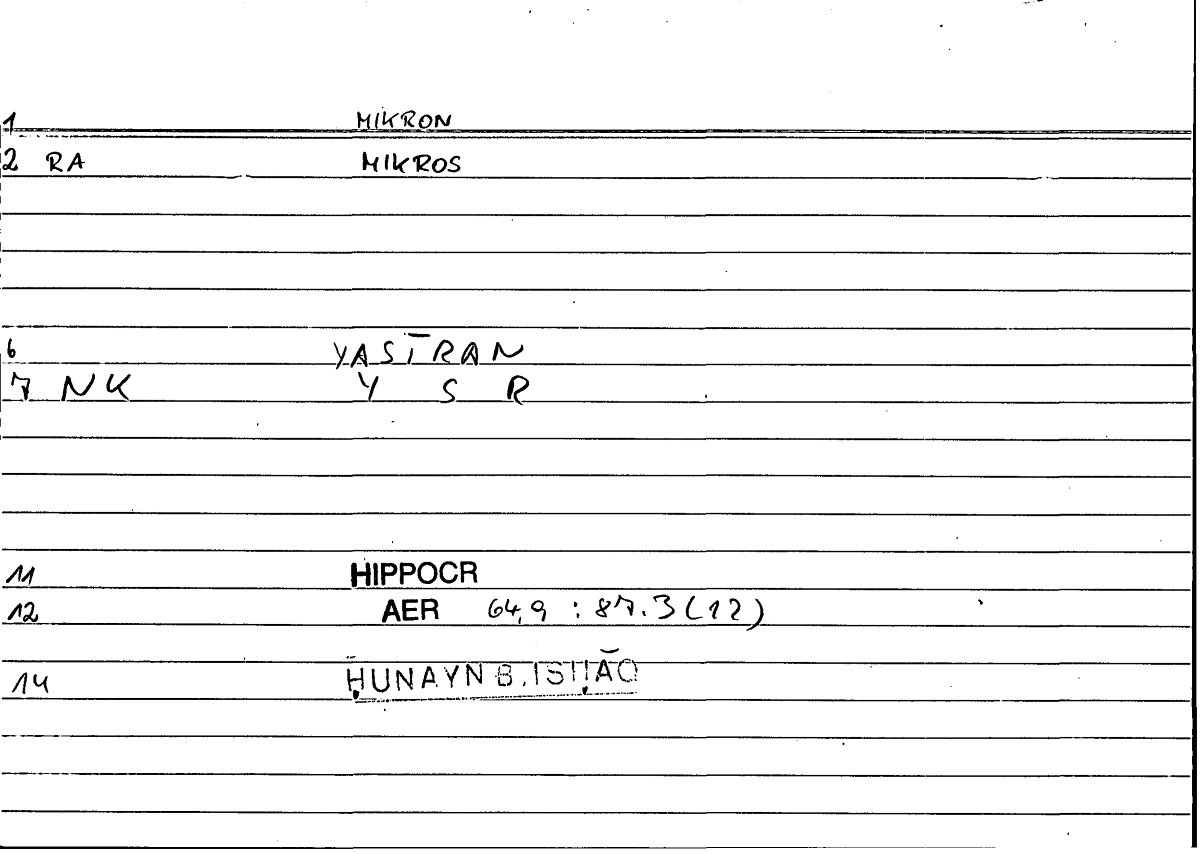 1 MIKRON
2 RA MIKROS
6 YASĪRAN
7 NK Y S R
11 HIPPOCR
12 AER 64,9 : 87.3 (12)
14 ḤUNAYN B. ISḤĀQ